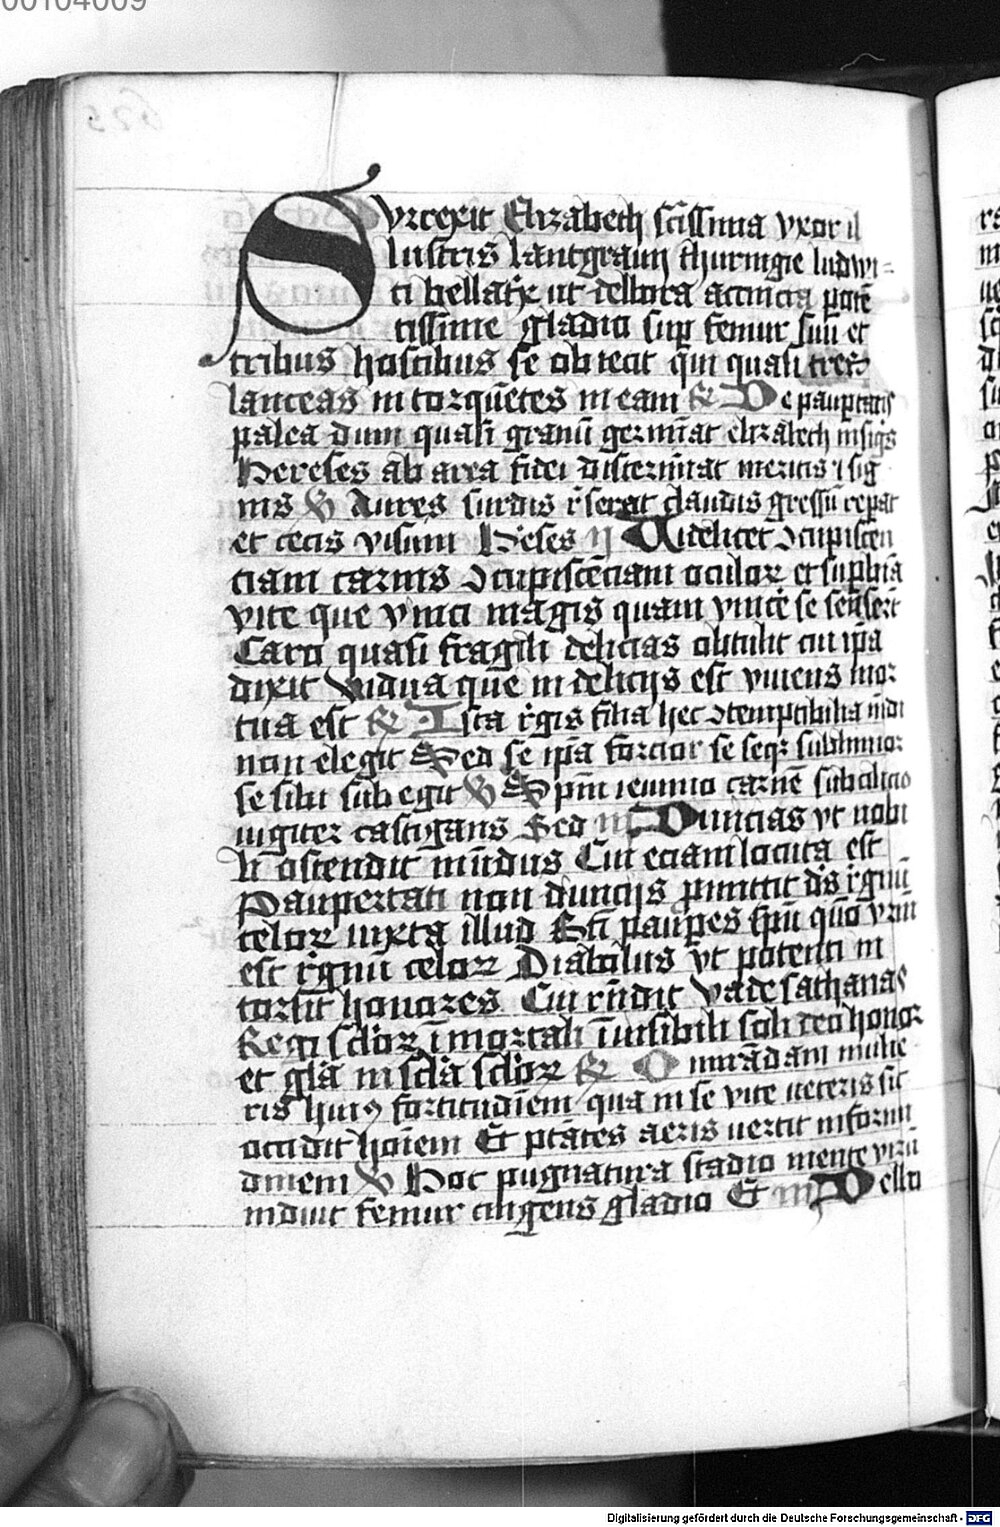 00104009
Surrexit Elizabeth sc̄issima vxor il
lustris lantgrauij thuringie ludwi=
ci bellat̉x ut delbora accincta potē
tissime gladio sup̱ femur suū et
tribus hostibus se obiecit qui quasi tres
lanceas in torquētes in eam R̷ De paup̱tatis
palea dum quasi granū germīat elizabeth insig̉s
Hereses ab area fidei discernītat meritis ⁊ sig
nis V̷ Aures surdis r̄serat claudis gressū rep̱at
et cecis visum Hereses ij Videlicet ꝯcupiscen
ciam carnis ꝯcupiscēciam oculoꝝ et sup̱biā
vite que vinci magis quam vincē se senserūt
Caro quasi fragili delicias obtulit cui ip̄a
dixit Vidua que in delicijs est viuens mor
tua est R̷ Ista r̄gis filia hec ꝯtemptibilia mūdi
non elegit Sed se ip̄a forcior se seqꝛ sublimior
se sibi subegit V̷ Sp̄m ieiunio carnē sub cilicio
iugiter castigans Sed iij Diuicias vt nobi
li ostendit mūdus Cui eciam locuta est
Paupertati non diuicijs ꝓmittit dn̄s r̄gnū
celoꝝ iuxta illud Bt̄i paup̱es sp̄u qm̄ vrm̄
est r̄gnū celoꝝ Diabolus vt potenti in
torsit honores Cui rn̄dit Vade sathanas
Regi sc̄loꝝ īmortali īuisibili soli deo honor
et gl̄a in sc̄la sc̄loꝝ R̷ O mirādam mulie
ris huiꝰ fortitudīem qua in se vite ueteris sic
occidit hoīem Et ptātes aeris uertit in formi
dinem V̷ Hoc pugnatura stadio mente virū
induit femur cingens gladio Et iij Bello
Digitalisierung gefördert durch die Deutsche Forschungsgemeinschaft - DFG